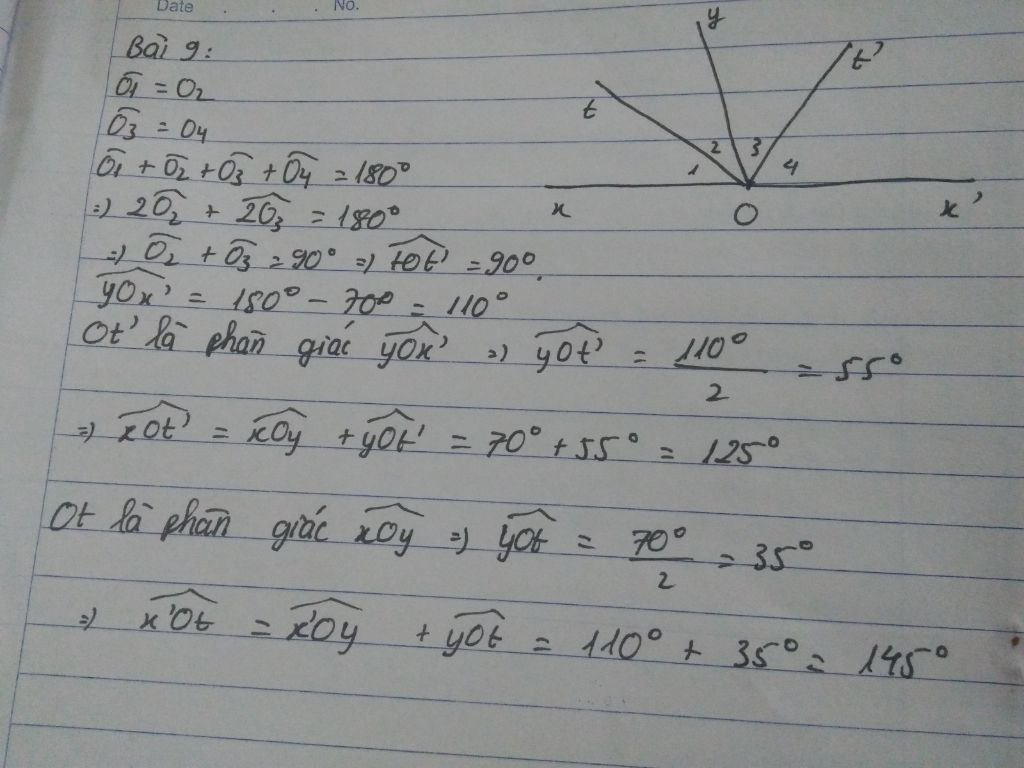 Date . . . No.
Bài 9:
Ô1 = O2
Ô3 = O4
Ô1 + Ô2 + Ô3 + Ô4 = 180°
=> 2Ô2 + 2Ô3 = 180°
=> Ô2 + Ô3 = 90° => tOt' = 90°.
yOx' = 180° - 70° = 110°
Ot' là phân giác yOx' => yOt' = 110°/2 = 55°
=> xOt' = xOy + yOt' = 70° + 55° = 125°
Ot là phân giác xOy => yOt = 70°/2 = 35°
=> x'Ot = x'Oy + yOt = 110° + 35° = 145°
y
t'
t
2 3
1 4
x O x'